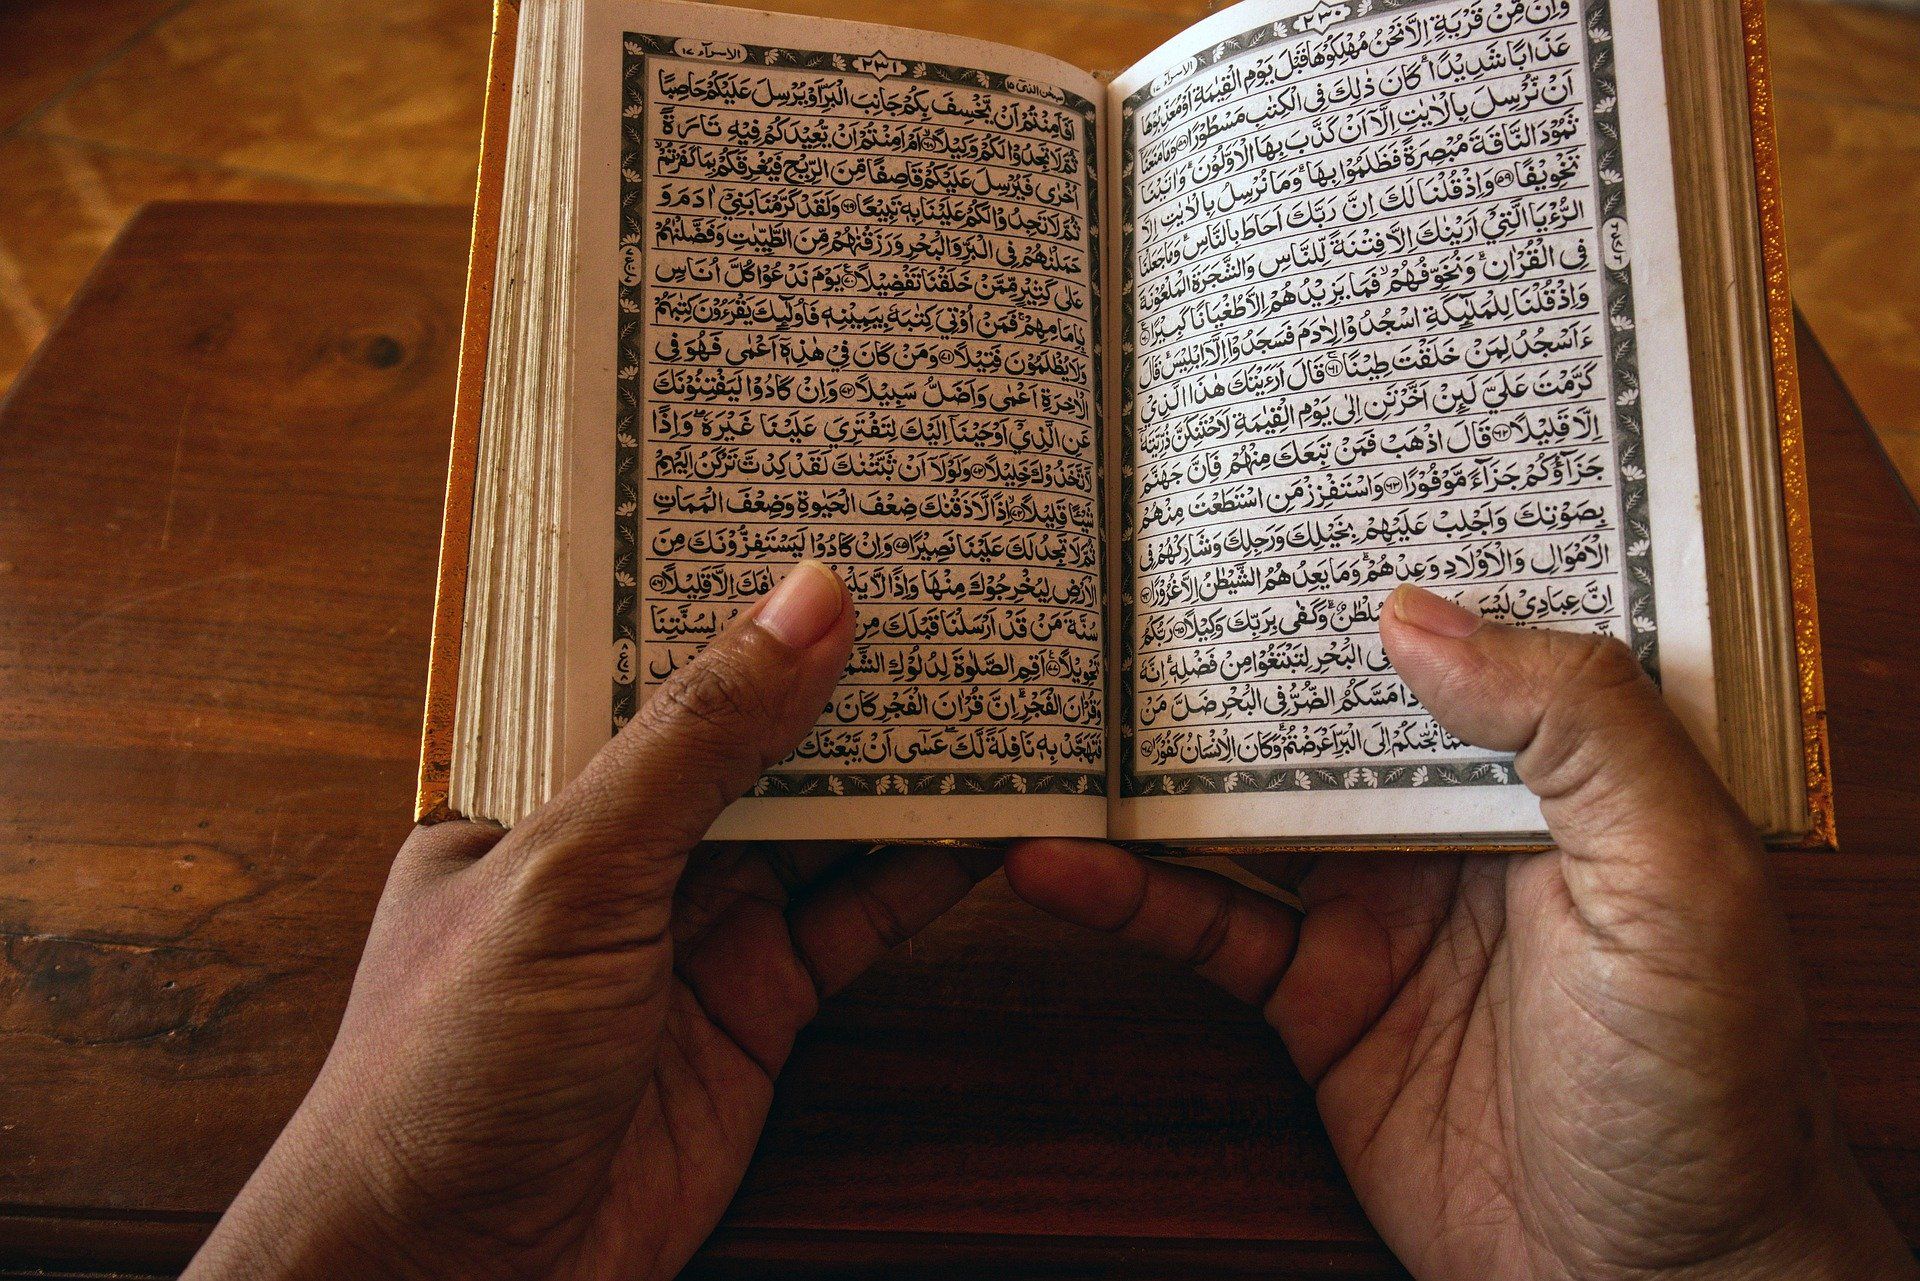 الاسرآء ١٧
٢٣٠
وَاِنْ مِّنْ قَرْيَةٍ اِلَّا نَحْنُ مُهْلِكُوْهَا قَبْلَ يَوْمِ الْقِيٰمَةِ اَوْ مُعَذِّبُوْهَا
عَذَابًا شَدِيْدًا ۗ كَانَ ذٰلِكَ فِى الْكِتٰبِ مَسْطُوْرًا ٥٨ وَمَا مَنَعَنَا
اَنْ نُّرْسِلَ بِالْاٰيٰتِ اِلَّا اَنْ كَذَّبَ بِهَا الْاَوَّلُوْنَ ۗ وَاٰتَيْنَا
ثَمُوْدَ النَّاقَةَ مُبْصِرَةً فَظَلَمُوْا بِهَا ۗ وَمَا نُرْسِلُ بِالْاٰيٰتِ اِلَّا
تَخْوِيْفًا ٥٩ وَاِذْ قُلْنَا لَكَ اِنَّ رَبَّكَ اَحَاطَ بِالنَّاسِ ۗ وَمَا جَعَلْنَا
الرُّءْيَا الَّتِيْ اَرَيْنٰكَ اِلَّا فِتْنَةً لِّلنَّاسِ وَالشَّجَرَةَ الْمَلْعُوْنَةَ
فِى الْقُرْاٰنِ ۗ وَنُخَوِّفُهُمْ ۙ فَمَا يَزِيْدُهُمْ اِلَّا طُغْيَانًا كَبِيْرًا ٦٠
وَاِذْ قُلْنَا لِلْمَلٰٓئِكَةِ اسْجُدُوْا لِاٰدَمَ فَسَجَدُوْٓا اِلَّآ اِبْلِيْسَ ۗ قَالَ
ءَاَسْجُدُ لِمَنْ خَلَقْتَ طِيْنًا ٦١ قَالَ اَرَءَيْتَكَ هٰذَا الَّذِيْ
كَرَّمْتَ عَلَيَّ لَئِنْ اَخَّرْتَنِ اِلٰى يَوْمِ الْقِيٰمَةِ لَاَحْتَنِكَنَّ ذُرِّيَّتَهٗٓ
اِلَّا قَلِيْلًا ٦٢ قَالَ اذْهَبْ فَمَنْ تَبِعَكَ مِنْهُمْ فَاِنَّ جَهَنَّمَ
جَزَآؤُكُمْ جَزَآءً مَّوْفُوْرًا ٦٣ وَاسْتَفْزِزْ مَنِ اسْتَطَعْتَ مِنْهُمْ
بِصَوْتِكَ وَاَجْلِبْ عَلَيْهِمْ بِخَيْلِكَ وَرَجِلِكَ وَشَارِكْهُمْ فِى
الْاَمْوَالِ وَالْاَوْلَادِ وَعِدْهُمْ ۗ وَمَا يَعِدُهُمُ الشَّيْطٰنُ اِلَّا غُرُوْرًا ٦٤
اِنَّ عِبَادِيْ لَيْسَ سُلْطٰنٌ ۗ وَكَفٰى بِرَبِّكَ وَكِيْلًا ٦٥ رَبُّكُمُ
فِى الْبَحْرِ لِتَبْتَغُوْا مِنْ فَضْلِهٖ ۗ اِنَّهٗ
مَسَّكُمُ الضُّرُّ فِى الْبَحْرِ ضَلَّ مَنْ
نَجّٰىكُمْ اِلَى الْبَرِّ اَعْرَضْتُمْ ۗ وَكَانَ الْاِنْسَانُ كَفُوْرًا ٦٧
سبحن الذى ١٥
٢٣١
الاسرآء ١٧
اَفَاَمِنْتُمْ اَنْ يَّخْسِفَ بِكُمْ جَانِبَ الْبَرِّ اَوْ يُرْسِلَ عَلَيْكُمْ حَاصِبًا
ثُمَّ لَا تَجِدُوْا لَكُمْ وَكِيْلًا ٦٨ اَمْ اَمِنْتُمْ اَنْ يُّعِيْدَكُمْ فِيْهِ تَارَةً
اُخْرٰى فَيُرْسِلَ عَلَيْكُمْ قَاصِفًا مِّنَ الرِّيْحِ فَيُغْرِقَكُمْ بِمَا كَفَرْتُمْ ۙ
ثُمَّ لَا تَجِدُوْا لَكُمْ عَلَيْنَا بِهٖ تَبِيْعًا ٦٩ وَلَقَدْ كَرَّمْنَا بَنِيْٓ اٰدَمَ وَ
حَمَلْنٰهُمْ فِى الْبَرِّ وَالْبَحْرِ وَرَزَقْنٰهُمْ مِّنَ الطَّيِّبٰتِ وَفَضَّلْنٰهُمْ
عَلٰى كَثِيْرٍ مِّمَّنْ خَلَقْنَا تَفْضِيْلًا ٧٠ يَوْمَ نَدْعُوْا كُلَّ اُنَاسٍ
بِاِمَامِهِمْ ۚ فَمَنْ اُوْتِيَ كِتٰبَهٗ بِيَمِيْنِهٖ فَاُولٰٓئِكَ يَقْرَءُوْنَ كِتٰبَهُمْ
وَلَا يُظْلَمُوْنَ فَتِيْلًا ٧١ وَمَنْ كَانَ فِيْ هٰذِهٖٓ اَعْمٰى فَهُوَ فِى
الْاٰخِرَةِ اَعْمٰى وَاَضَلُّ سَبِيْلًا ٧٢ وَاِنْ كَادُوْا لَيَفْتِنُوْنَكَ
عَنِ الَّذِيْٓ اَوْحَيْنَآ اِلَيْكَ لِتَفْتَرِيَ عَلَيْنَا غَيْرَهٗ ۖ وَاِذًا
لَّاتَّخَذُوْكَ خَلِيْلًا ٧٣ وَلَوْلَآ اَنْ ثَبَّتْنٰكَ لَقَدْ كِدْتَّ تَرْكَنُ اِلَيْهِمْ
شَيْئًا قَلِيْلًا ٧٤ اِذًا لَّاَذَقْنٰكَ ضِعْفَ الْحَيٰوةِ وَضِعْفَ الْمَمَاتِ
ثُمَّ لَا تَجِدُ لَكَ عَلَيْنَا نَصِيْرًا ٧٥ وَاِنْ كَادُوْا لَيَسْتَفِزُّوْنَكَ مِنَ
الْاَرْضِ لِيُخْرِجُوْكَ مِنْهَا وَاِذًا لَّا خِلٰفَكَ اِلَّا قَلِيْلًا ٧٦
سُنَّةَ مَنْ قَدْ اَرْسَلْنَا قَبْلَكَ مِنْ لِسُنَّتِنَا
تَحْوِيْلًا ٧٧ اَقِمِ الصَّلٰوةَ لِدُلُوْكِ الشَّمْسِ
وَقُرْاٰنَ الْفَجْرِ ۗ اِنَّ قُرْاٰنَ الْفَجْرِ كَانَ
فَتَهَجَّدْ بِهٖ نَافِلَةً لَّكَ ۖ عَسٰٓى اَنْ يَّبْعَثَكَ